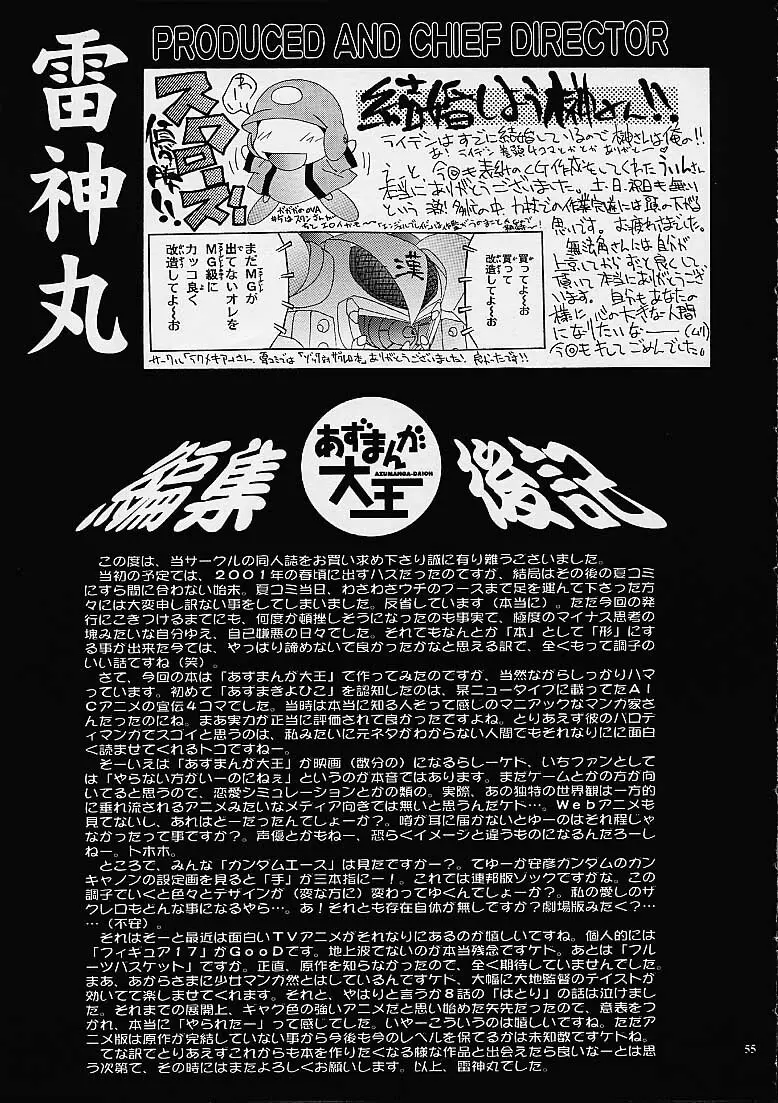 PRODUCED AND CHIEF DIRECTOR
雷神丸
結婚しよう榊さん!!
ライデンはすでに結婚しているので榊さんは俺の!!
えっと、今回も表紙のCG作本をしてくれたういんさん
本当にありがとうございました。土、日、祝日も無い
思いです。お疲れさまでした。
無法角さんには自分が
頂いて本当にありがとうござ
います。自分もあなたの
様に、心の大きな人間
になりたいなー(ムリ)
今回もキしてごめんでした。
漢
買ってよ〜お
買って
改造してよ〜お
まだMGが
出てないオレを
MG級に
カッコ良く
改造してよ〜お
編集
あずまんが
AZUMANGA-DAIOH
大王
後記
この度は、当サークルの同人誌をお買い求め下さり誠に有り難うございました。
当初の予定では、2001年の春頃に出すハズだったのですが、結局はその後の夏コミ
にすら間に合わない始末。夏コミ当日、わざわざウチのブースまで足を運んで下さった方
々には大変申し訳ない事をしてしまいました。反省しています(本当に)。ただ今回の発
行にこぎつけるまでにも、何度か頓挫しそうになったのも事実で、極度のマイナス思考の
塊みたいな自分ゆえ、自己嫌悪の日々でした。それでもなんとか「本」として「形」にす
る事が出来た今では、やっぱり諦めないで良かったかなと思える訳で、全くもって調子の
いい話ですね(笑)。
さて、今回の本は「あずまんが大王」で作ってみたのですが、当然ながらしっかりハマ
っています。初めて「あずまきよひこ」を認知したのは、某ニュータイプに載ってたAI
Cアニメの宣伝4コマでした。当時は本当に知る人ぞって感じのマニアックなマンガ家さ
んだったのにね。まあ実力が正当に評価されて良かったですよね。とりあえず彼のパロデ
ィマンガでスゴイと思うのは、私みたいに元ネタがわからない人間でもそれなりにに面白
く読ませてくれるトコですねー。
そーいえば「あずまんが大王」が映画(数分の)になるらしーケド、いちファンとして
は「やらない方がいーのにねぇ」というのが本音ではあります。まだゲームとかの方が向
いてると思うので、恋愛シミュレーションとかの類の。実際、あの独特の世界観は一方的
に垂れ流されるアニメみたいなメディア向きでは無いと思うんだケド…。Webアニメも
見てないし、あれはどーだったんでしょーか?噂が耳に届かないとゆーのはそれ程じゃ
なかったって事ですか?声優とかもねー、恐らくイメージと違うものになるんだろーし
ねー。トホホ。
ところで、みんな「ガンダムエース」は見たですかー?てゆーか安彦ガンダムのガン
キャノンの設定画を見ると「手」が三本指にー!。これでは連邦版ゾックですがな。この
調子でいくと色々とデザインが(変な方に)変わってゆくんでしょーか?私の愛しのザ
クレロもどんな事になるやら…。あ!それとも存在自体が無しですか?劇場版みたく?…
…(不安)。
それはそーと最近は面白いTVアニメがそれなりにあるのが嬉しいですね。個人的には
「フィギュア17」がGooDです。地上波でないのが本当残念ですケド。あとは「フル
ーツバスケット」ですか。正直、原作を知らなかったので、全く期待していませんでした。
まあ、あからさまに少女マンガ然とはしているんですケド、大幅に大地監督のテイストが
効いてて楽しませてくれます。それと、やはりと言うか8話の「はとり」の話は泣けまし
た。それまでの展開上、ギャグ色の強いアニメだと思い始めた矢先だったので、意表をつ
かれ、本当に「やられたー」って感じでした。いやーこういうのは嬉しいですね。ただア
ニメ版は原作が完結していない事から今後も今のレベルを保てるかは未知数ですケドね。
てな訳でとりあえずこれからも本を作りたくなる様な作品と出会えたら良いなーとは思
う次第で、その時にはまたよろしくお願いします。以上、雷神丸でした。
55